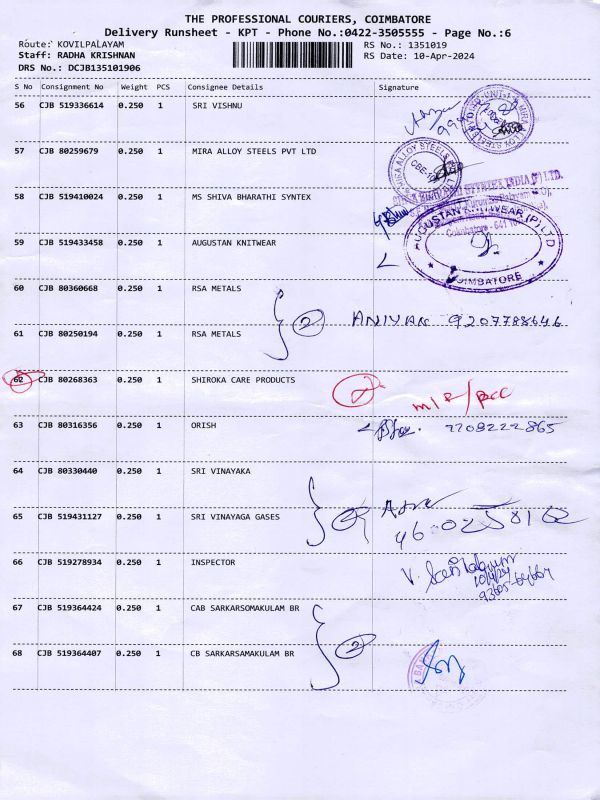 THE PROFESSIONAL COURIERS, COIMBATORE
Delivery Runsheet - KPT - Phone No.:0422-3505555 - Page No.:6
Route: KOVILPALAYAM RS No.: 1351019
Staff: RADHA KRISHNAN RS Date: 10-Apr-2024
DRS No.: DCJB135101906
S No Consignment No Weight PCS Consignee Details Signature
56 CJB 519336614 0.250 1 SRI VISHNU
57 CJB 80259679 0.250 1 MIRA ALLOY STEELS PVT LTD
MIRA ALLOY STEELS
58 CJB 519410024 0.250 1 MS SHIVA BHARATHI SYNTEX
59 CJB 519433458 0.250 1 AUGUSTAN KNITWEAR
AUGUSTAN KNITWEAR (P) LTD
COIMBATORE
60 CJB 80360668 0.250 1 RSA METALS
2 ANIYAN 9207788646
61 CJB 80250194 0.250 1 RSA METALS
62 CJB 80268363 0.250 1 SHIROKA CARE PRODUCTS
63 CJB 80316356 0.250 1 ORISH
7708222865
64 CJB 80330440 0.250 1 SRI VINAYAKA
65 CJB 519431127 0.250 1 SRI VINAYAGA GASES
66 CJB 519278934 0.250 1 INSPECTOR
10/4/24
67 CJB 519364424 0.250 1 CAB SARKARSOMAKULAM BR
2
68 CJB 519364407 0.250 1 CB SARKARSOMAKULAM BR